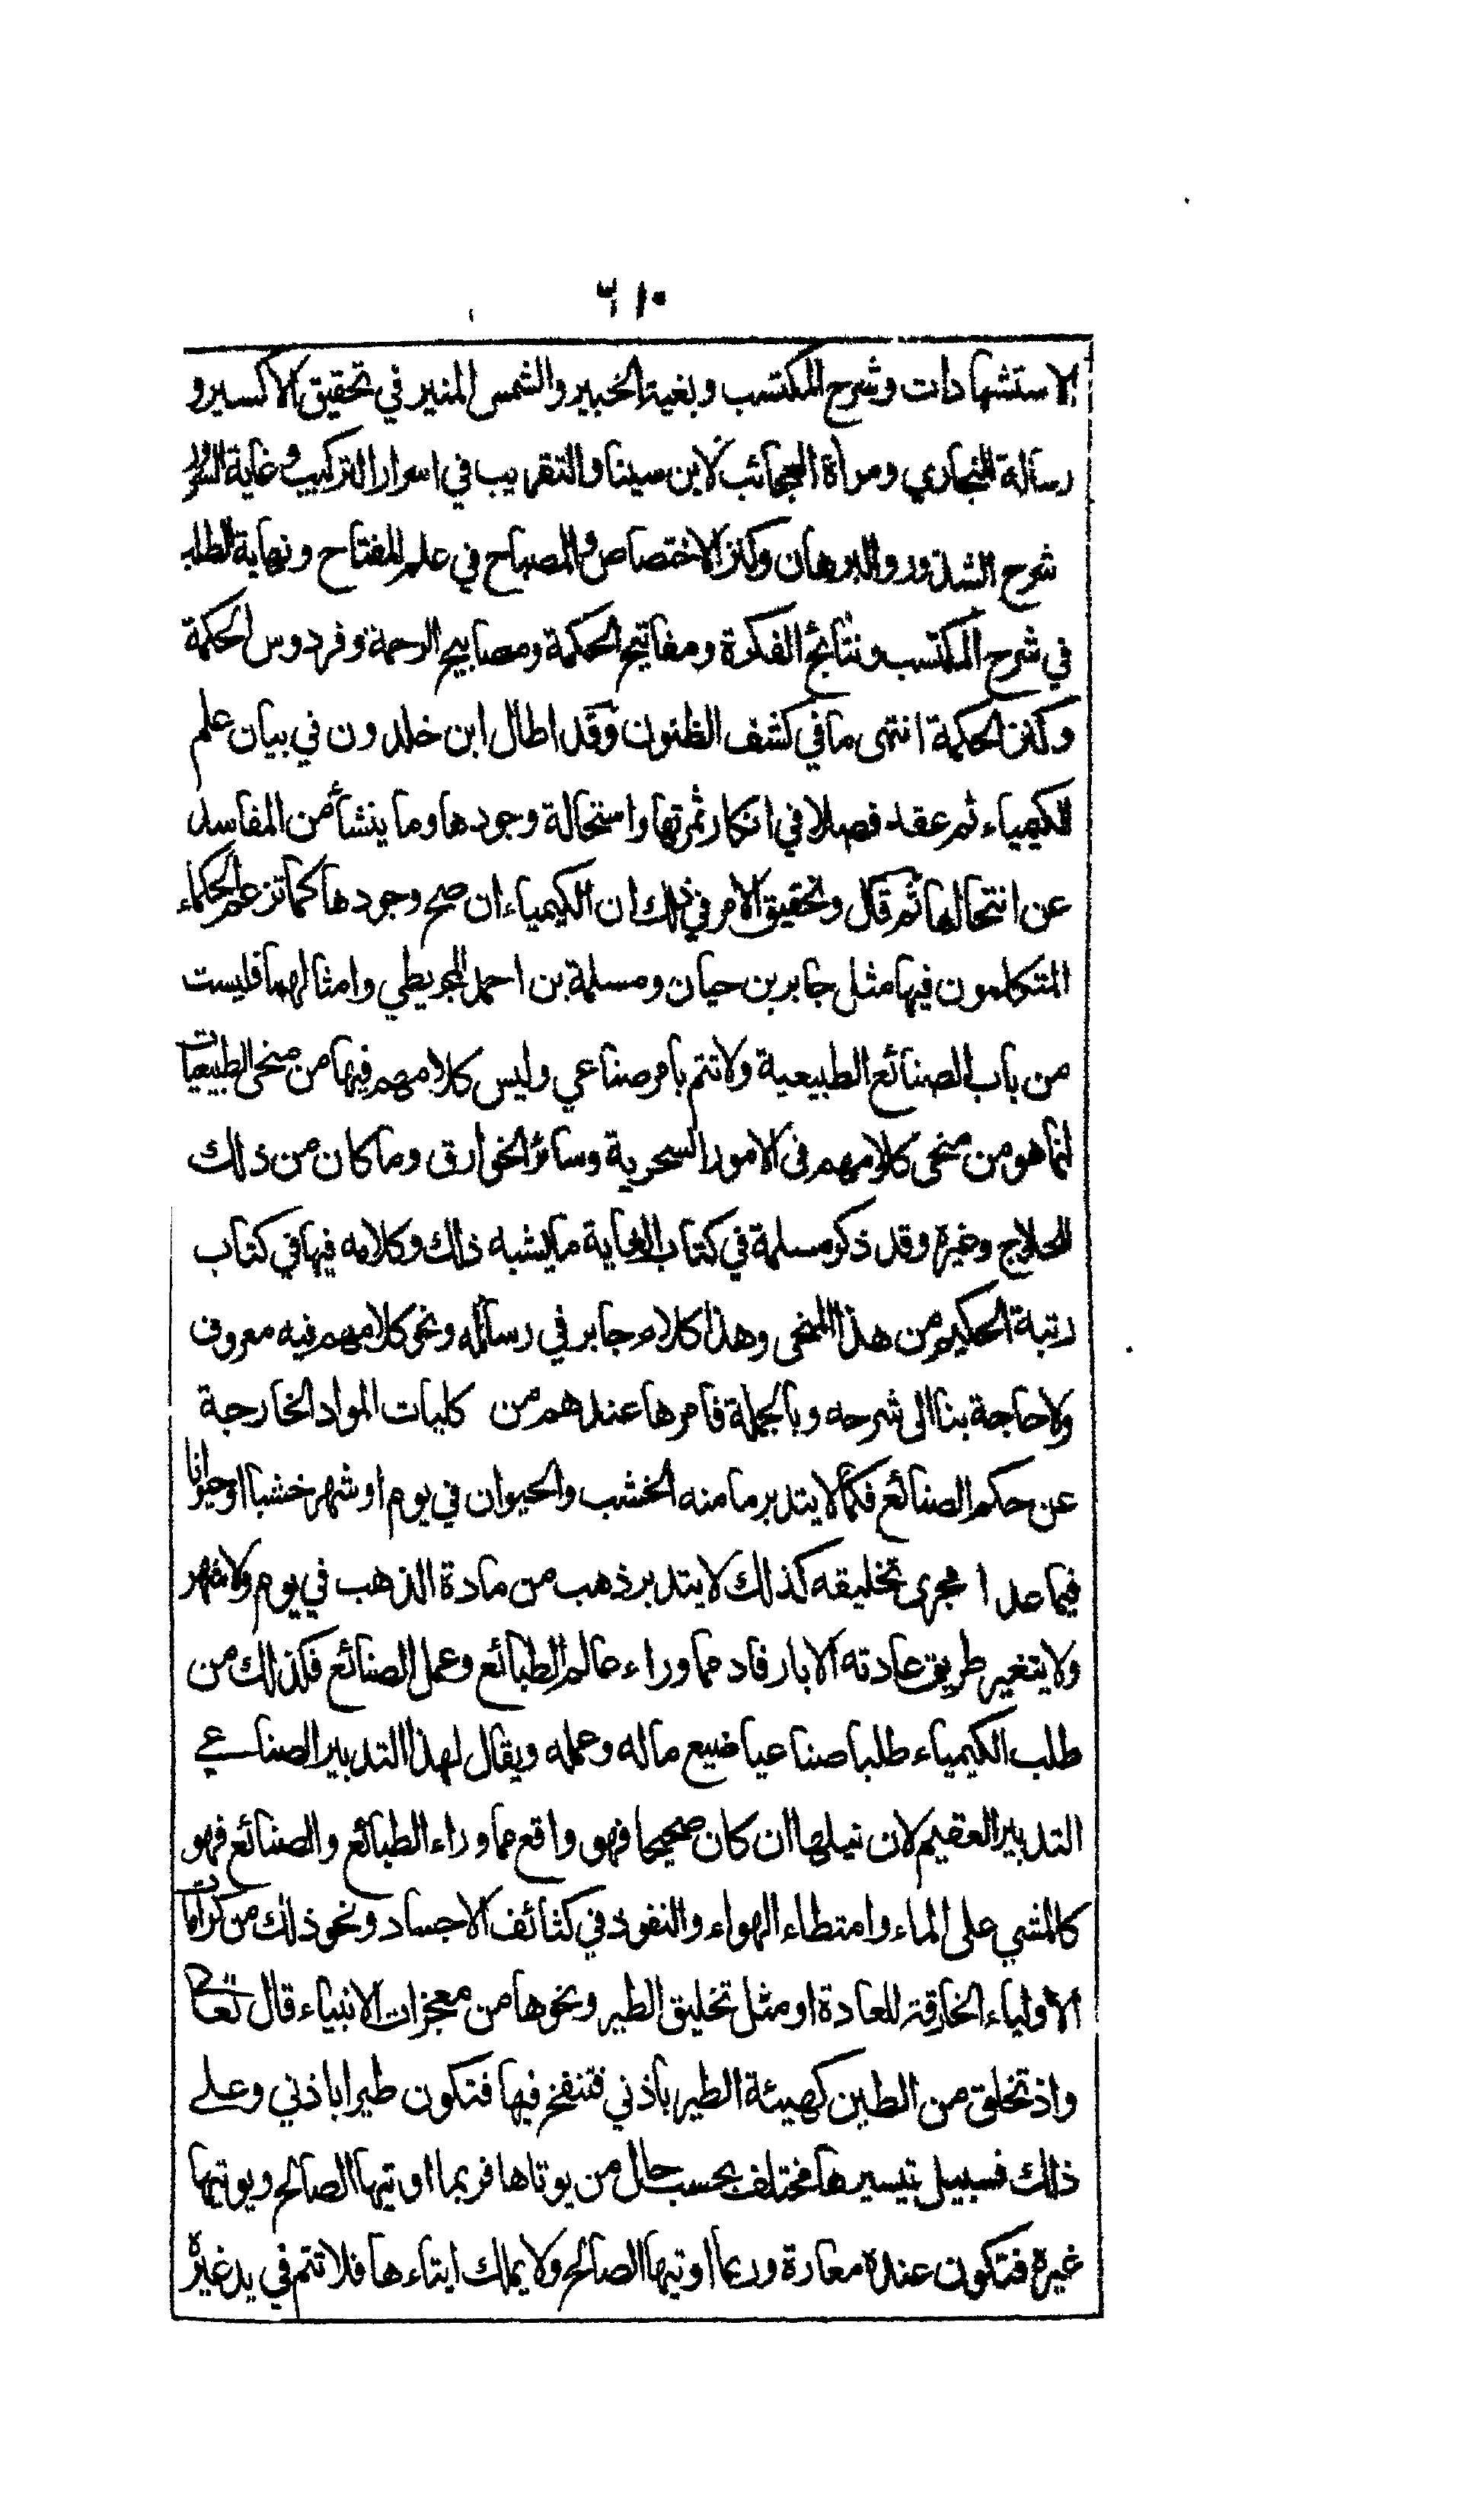 ٦١٠
الاستشهادات وشرح المكتسب وبغية الخبير والشمس المنير في تحقيق الاكسير و
رسالة للبخاري ومرأة العجائب لابن سينا والتقريب في اسرار التركيب وغاية السرور
شرح الشذور والبرهان وكنز الاختصاص والمصباح في علم المفتاح ونهاية الطلب
في شرح المكتسب ونتائج الفكرة ومفاتيح الحكمة ومصابيح الرحمة وفردوس الحكمة
وكنز الحكمة انتهى ما في كشف الظنون وقد اطال ابن خلدون في بيان علم
الكيمياء ثم عقد فصلا في انكار ثمرتها واستحالة وجودها وما ينشأ من المفاسد
عن انتحالها ثم قال وتحقيق الامر في ذلك ان الكيمياء ان صح وجودها كما تزعم الحكماء
المتكلمون فيها مثل جابر بن حيان ومسلمة بن احمد المجريطي وامثالهما فليست
من باب الصنائع الطبيعية ولا تتم بامر صناعي وليس كلامهم فيها من منحى الطبيعيات
انما هو من منحى كلامهم في الامور السحرية وسائر الخوارق وما كان من ذلك
للحلاج وغيره وقد ذكر مسلمة في كتاب الغاية ما يشبه ذلك وكلامه فيها في كتاب
رتبة الحكيم من هذا المنحى وهذا كلام جابر في رسائله ونحو كلامهم فيه معروف
ولا حاجة بنا الى شرحه وبالجملة فامرها عندهم من كليات المواد الخارجة
عن حكم الصنائع فكما لا يتدبر ما منه الخشب والحيوان في يوم او شهر خشبا او حيوانا
فيما عدا مجرى تخليقه كذلك لا يتدبر ذهب من مادة الذهب في يوم ولا شهر
ولا يتغير طريق عادته الا بارفاد مما وراء عالم الطبائع وعمل الصنائع فكذلك من
طلب الكيمياء طلبا صناعيا ضيع ماله وعمله ويقال لهذا التدبير الصناعي
التدبير العقيم لان نيلها ان كان صحيحا فهو واقع مما وراء الطبائع والصنائع فهو
كالمشي على الماء وامتطاء الهواء والنفوذ في كثائف الاجساد ونحو ذلك من كرامات
الأولياء الخارقة للعادة او مثل تخليق الطير ونحوها من معجزات الانبياء قال تعالى
واذ تخلق من الطين كهيئة الطير باذني فتنفخ فيها فتكون طيرا باذني وعلى
ذلك فسبيل تيسيرها مختلف بحسب حال من يوتاها فربما اوتيها الصالح ويوتيها
غيره فتكون عنده معارة وربما اوتيها الصالح ولا يملك ايتاءها فلا تتم في يد غيره